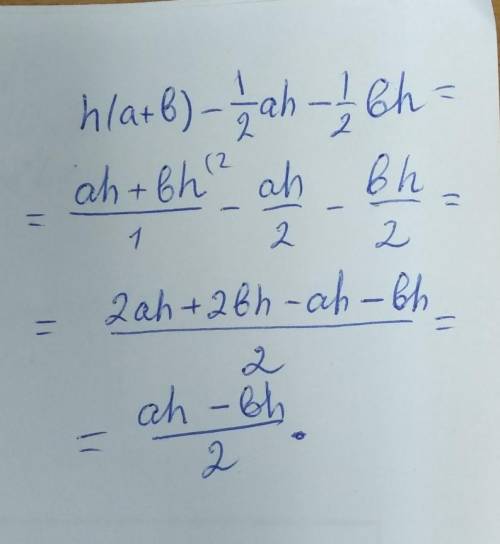 h(a+b) - 1/2 ah - 1/2 bh =
= (ah + bh)/1 (2 - ah/2 - bh/2 =
= (2ah + 2bh - ah - bh)/2 =
= (ah - bh)/2 .